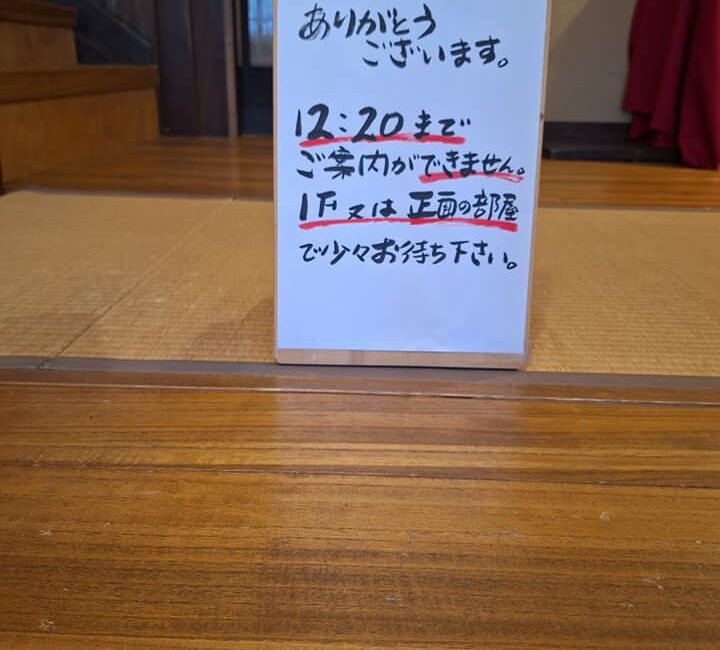 ありがとう
ございます。
12:20まで
ご案内ができません。
1F又は正面の部屋
で少々お待ち下さい。